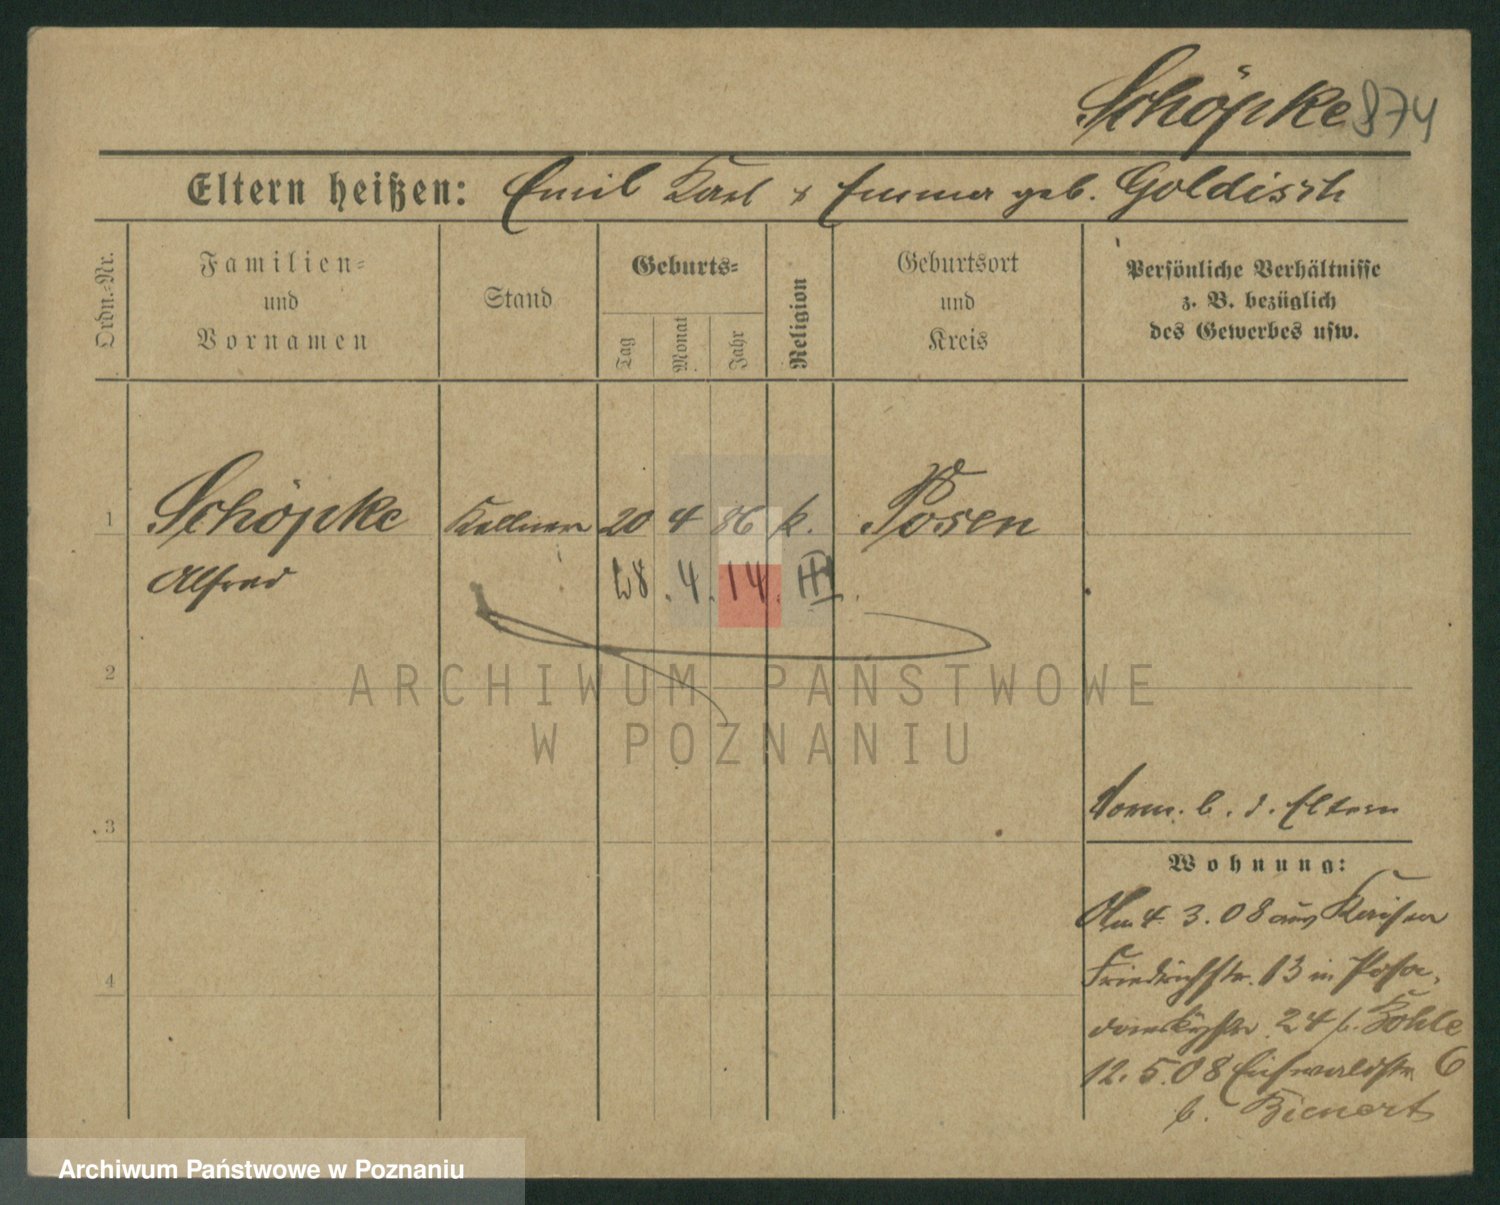 Schöpke 874
Eltern heißen: Emil Karl & Emma geb. Goldisch
Ordn.-Nr.
Familien-
und
Vornamen
Stand
Geburts-
Tag
Monat
Jahr
Religion
Geburtsort
und
Kreis
Persönliche Verhältnisse
z. B. bezüglich
des Gewerbes usw.
1 Schöpke Kellner 20 4 86 k. Posen
Alfred
. 4. 14.
2
ARCHIWUM PAŃSTWOWE
W POZNANIU
3
b. d. Eltern
Wohnung:
4. 3. 08 aus Kaiser
Friedrichstr. 13 in Posa-
dowskystr. 24 b. Kohle
4
12. 5. 08 Eichwaldstr. 6
b. Bienert
Archiwum Państwowe w Poznaniu